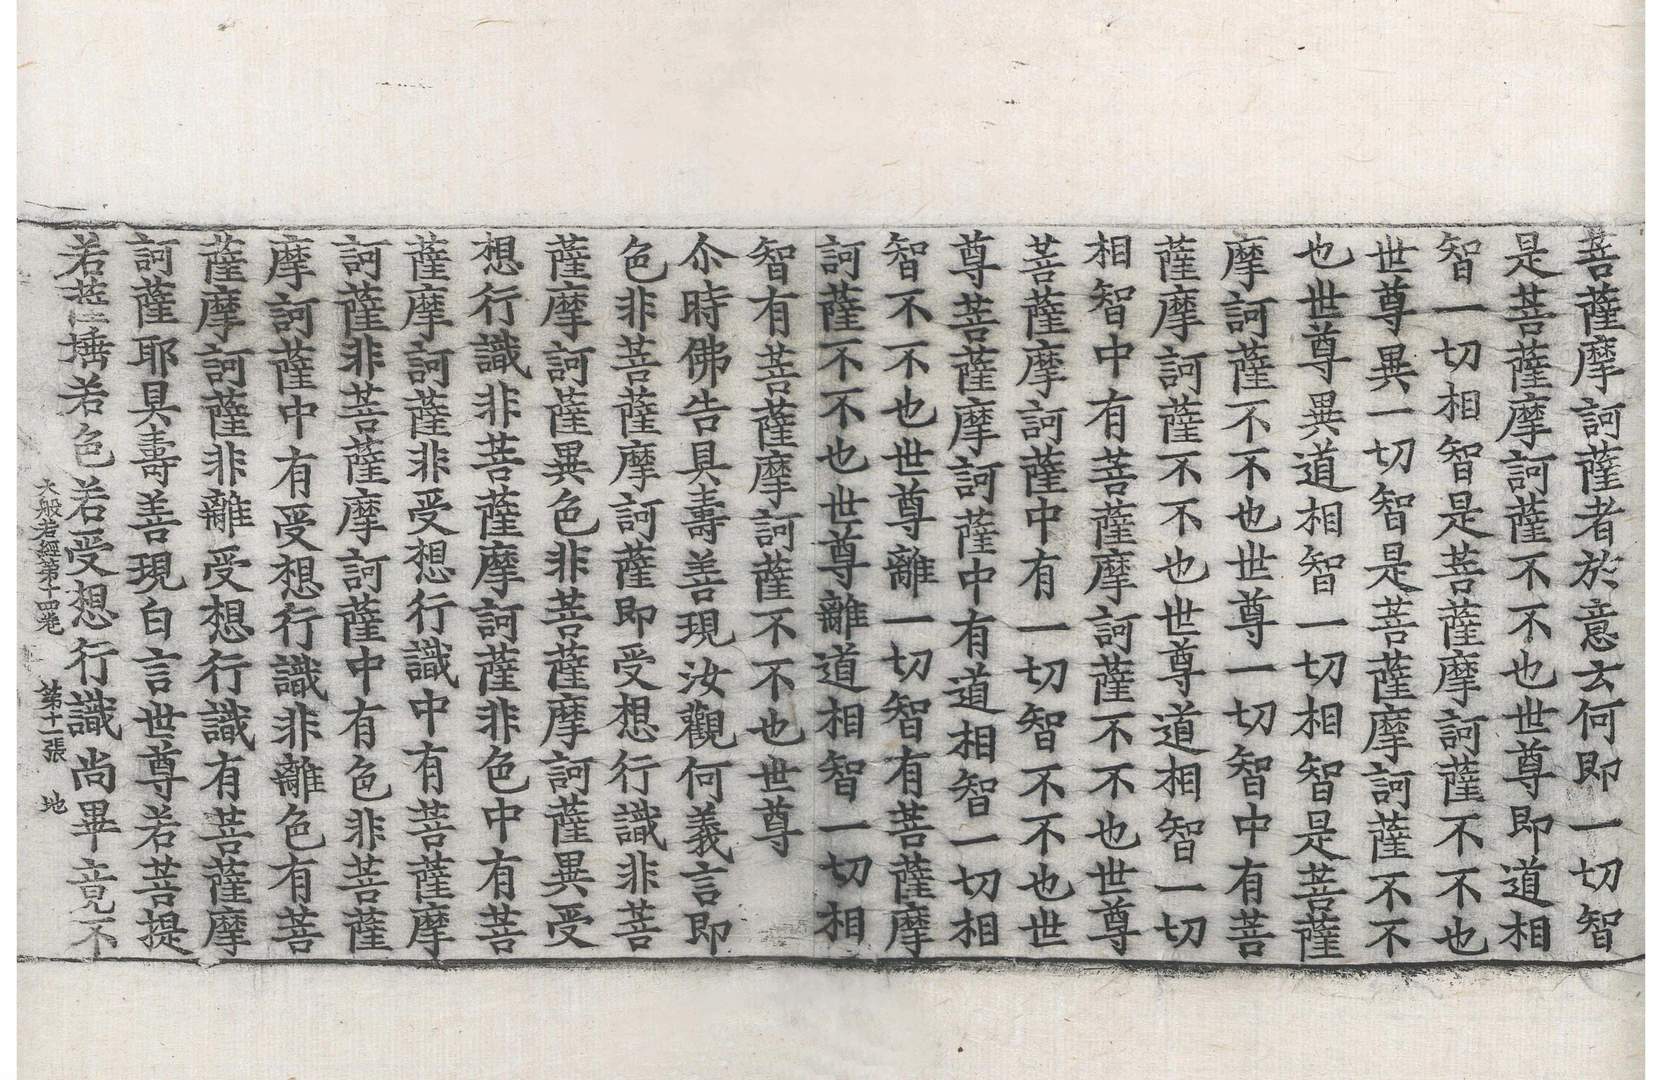 菩薩摩訶薩者於意云何即一切智
是菩薩摩訶薩不不也世尊即道相
智一切相智是菩薩摩訶薩不不也
世尊異一切智是菩薩摩訶薩不不
也世尊異道相智一切相智是菩薩
摩訶薩不不也世尊一切智中有菩
薩摩訶薩不不也世尊道相智一切
相智中有菩薩摩訶薩不不也世尊
菩薩摩訶薩中有一切智不不也世
尊菩薩摩訶薩中有道相智一切相
智不不也世尊離一切智有菩薩摩
訶薩不不也世尊離道相智一切相
智有菩薩摩訶薩不不也世尊
尒時佛告具壽善現汝觀何義言即
色非菩薩摩訶薩即受想行識非菩
薩摩訶薩異色非菩薩摩訶薩異受
想行識非菩薩摩訶薩非色中有菩
薩摩訶薩非受想行識中有菩薩摩
訶薩非菩薩摩訶薩中有色非菩薩
摩訶薩中有受想行識非離色有菩
薩摩訶薩非離受想行識有菩薩摩
訶薩耶具壽善現白言世尊若菩提
若埵若色若受想行識尚畢竟不
大般若經第十四卷 第十一張 地